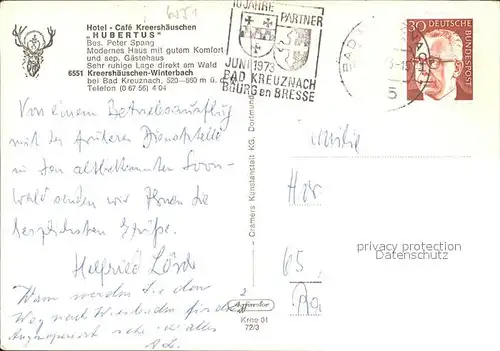 6551
Hotel - Café Kreershäuschen
"HUBERTUS"
Bes. Peter Spang
Modernes Haus mit gutem Komfort
und sep. Gästehaus
Sehr ruhige Lage direkt am Wald
6551 Kreershäuschen-Winterbach
bei Bad Kreuznach, 520—560 m ü.
Telefon (0 67 56) 4 04
10 JAHRE PARTNER
JUNI 1973
BAD KREUZNACH
BOURG en BRESSE
BAD
5
30
DEUTSCHE BUNDESPOST
Von einem Betriebsausflug
mit der früheren Dienststelle
in den altbekannten Soon-
wald senden wir Ihnen die
herzlichsten Grüße.
Helfried
Wann werden Sie den
Weg nach Wiesbaden für die
sehr alles
Familie
65
privacy protection
watermarks
Cramers Kunstanstalt KG, Dortmund
Krne 01
72/3